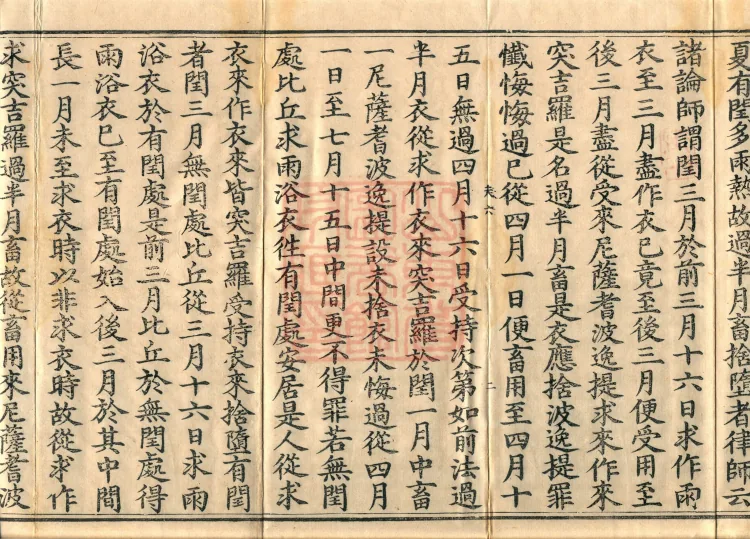 夏有閏多雨熱故過半月畜捨墮者律師云
諸論師謂閏三月於前三月十六日求作雨
衣至三月盡作衣已竟至後三月便受用至
後三月盡從受來尼薩耆波逸提求來作來
突吉羅是名過半月畜是衣應捨波逸提罪
懺悔悔過已從四月一日便畜用至四月十
夫六
二
五日無過四月十六日受持次第如前法過
半月衣從求作衣來突吉羅於閏一月中畜
一尼薩耆波逸提設未捨衣未悔過從四月
一日至七月十五日中間更不得罪若無閏
處比丘求雨浴衣徃有閏處安居是人從求
衣來作衣來皆突吉羅受持衣來捨墮有閏
者閏三月無閏處比丘從三月十六日求雨
浴衣於有閏處是前三月比丘於無閏處得
雨浴衣已至有閏處始入後三月於其中間
長一月未至求衣時以非求衣時故從求作
求突吉羅過半月畜故從畜用來尼薩耆波